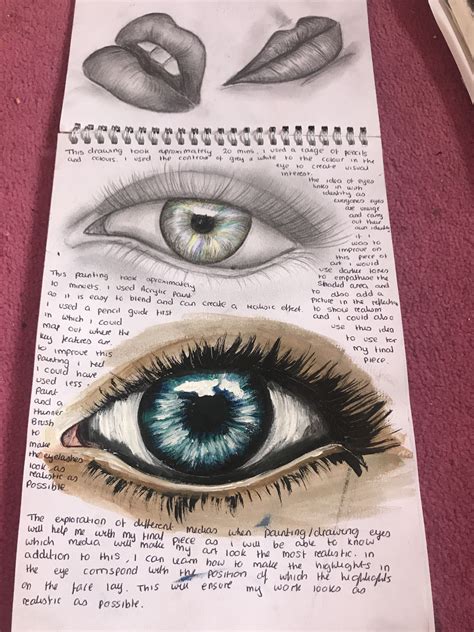 This drawing took aproximately 20 mins. i used a range of pencils
and colours. I used the contrast of grey & white to the colour in the
eye to create visual
interest.
the idea of eyes
links in with
identity as
everyones eyes
are unique
and carry
out their
own identity
if i
was to
improve on
this piece of
art i would
use darker tones
to empathise the
shaded area, and
to also add a
picture in the reflection
to show realism
and i could also
use this idea
to use for
my final
piece.
This painting took aproximately
10 minuets. I used Acrylic Paint
as it is easy to blend and can create a realistic effect.
I used a pencil guide first
in which i could
map out where the
key features are.
to improve this
Painting i
I could have
used less
Paint
and a
thunner
Brush
to
make
the eyelashes
look as
realistic as
Possible.
The exploration of different medias when painting/drawing eyes
will help me with my final piece as i will be able to know
which media will make my art look the most realistic. in
addition to this, I can learn how to make the highlights in
the eye correspond with the position of which the highlights
on the face lay. This will ensure my work looks as
realistic as possible.